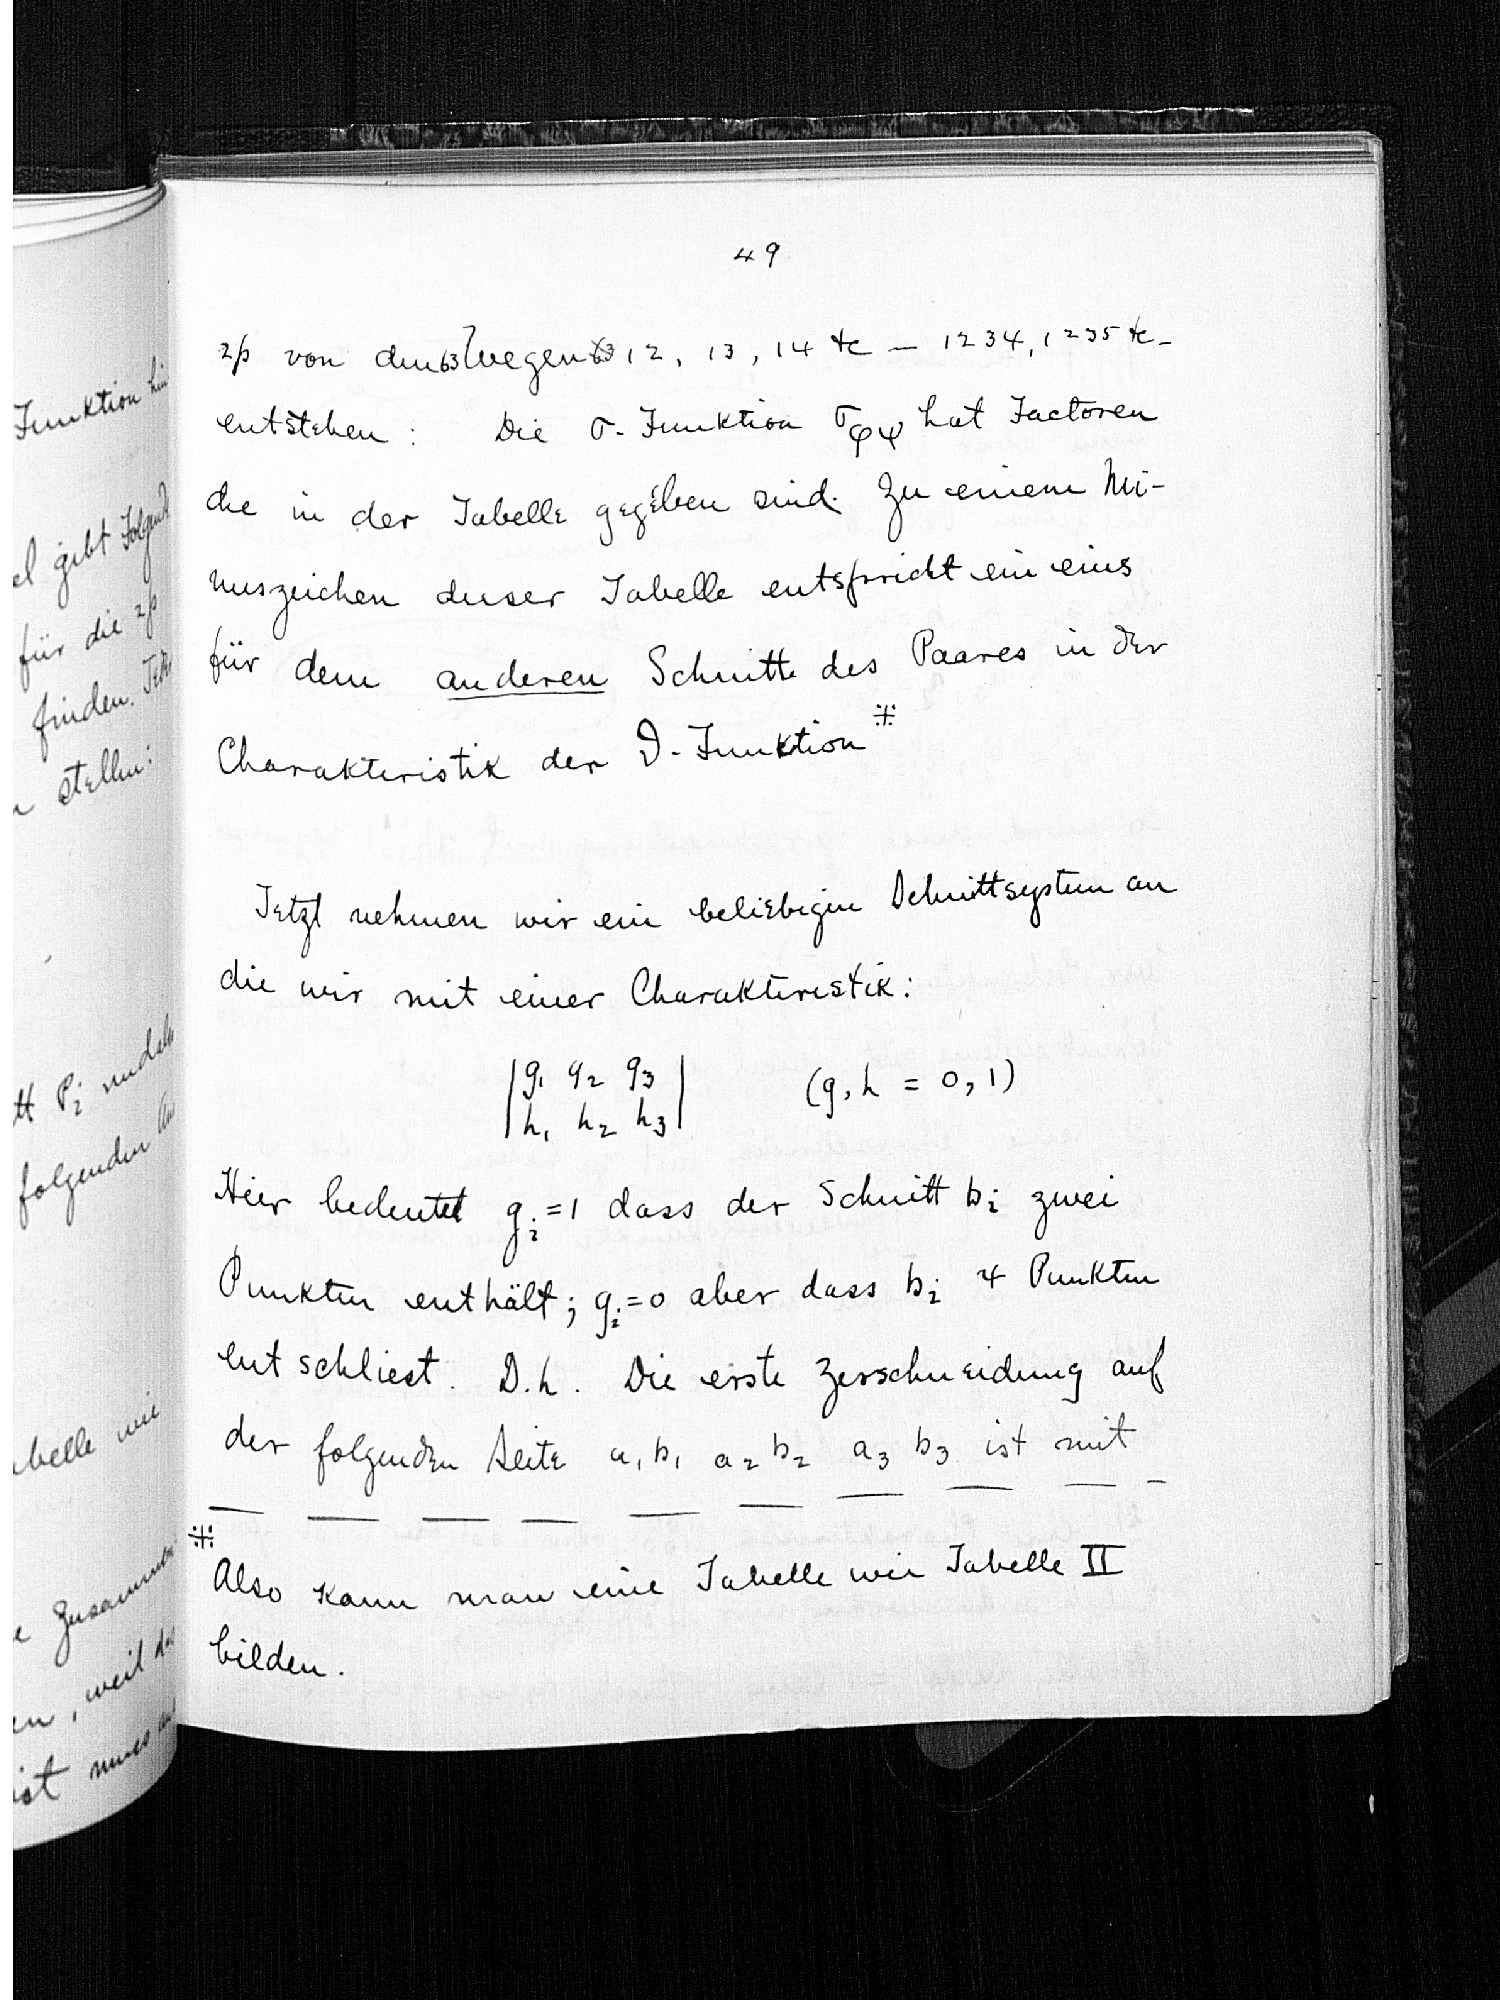 Funktion hin
el gibt Folgend
für die 2p
finden. Jet
n stellen:
tt P2 nudel
folgenden
abelle wie
e Zusammen
en, weil das
ist
49
2p von den 63 Wegen 12, 13, 14 &c — 1234, 1235 &c -
entstehen : Die σ-Funktion σφψ hat Factoren
die in der Tabelle gegeben sind. Zu einem Mi-
nuszeichen dieser Tabelle entspricht ein eins
für dem anderen Schnitte des Paares in der
Charakteristik der ϑ-Funktion ※
Jetzt nehmen wir ein beliebigen Schnittsystem an
die wir mit einer Charakteristik:
|g1 g2 g3| (g, h = 0, 1)
|h1 h2 h3|
Hier bedeutet gi=1 dass der Schnitt bi zwei
Punkten enthält; gi=0 aber dass bi 4 Punkten
entschliest. D.h. Die erste Zerschneidung auf
der folgenden Seite a1 b1 a2 b2 a3 b3 ist mit
※
Also kann man eine Tabelle wie Tabelle II
bilden.